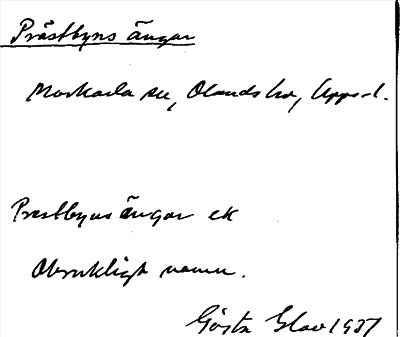 Prästbyns ängar
Morkarla sn, Olands hd, Uppsl.
Prestbyns ängar ek
Obrukligt namn.
Gösta Elow 1937